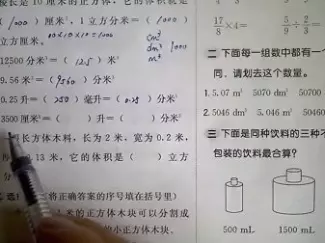 棱长是10厘米的正方体，它的体积就是
(1000)厘米³，1立方分米=(1000)
立方厘米。10×10×10=1000
cm³
dm³ 1000
m³
12500分米³=(12.5)米³
9.56米³=(9560)分米³
0.25升=(250)毫升=(0.25)分米³
3500厘米³=( )升=( )分米³
长方体木料，长为2米，宽为0.2米，
0.13米，它的体积是( )立方
选(将正确答案的序号填在括号里)
米的正方体木块可以分割成
的小正方体木块。
17/8×4=
5/9÷2/3=
二 下面每一组数中都有一个
同，请划去这个数量。
1. 5.07m³ 5070dm³ 50700
2. 5046dm³ 5.046m³ 50460
三 下面是同种饮料的三种不
包装的饮料最合算？
500 mL
1500 mL